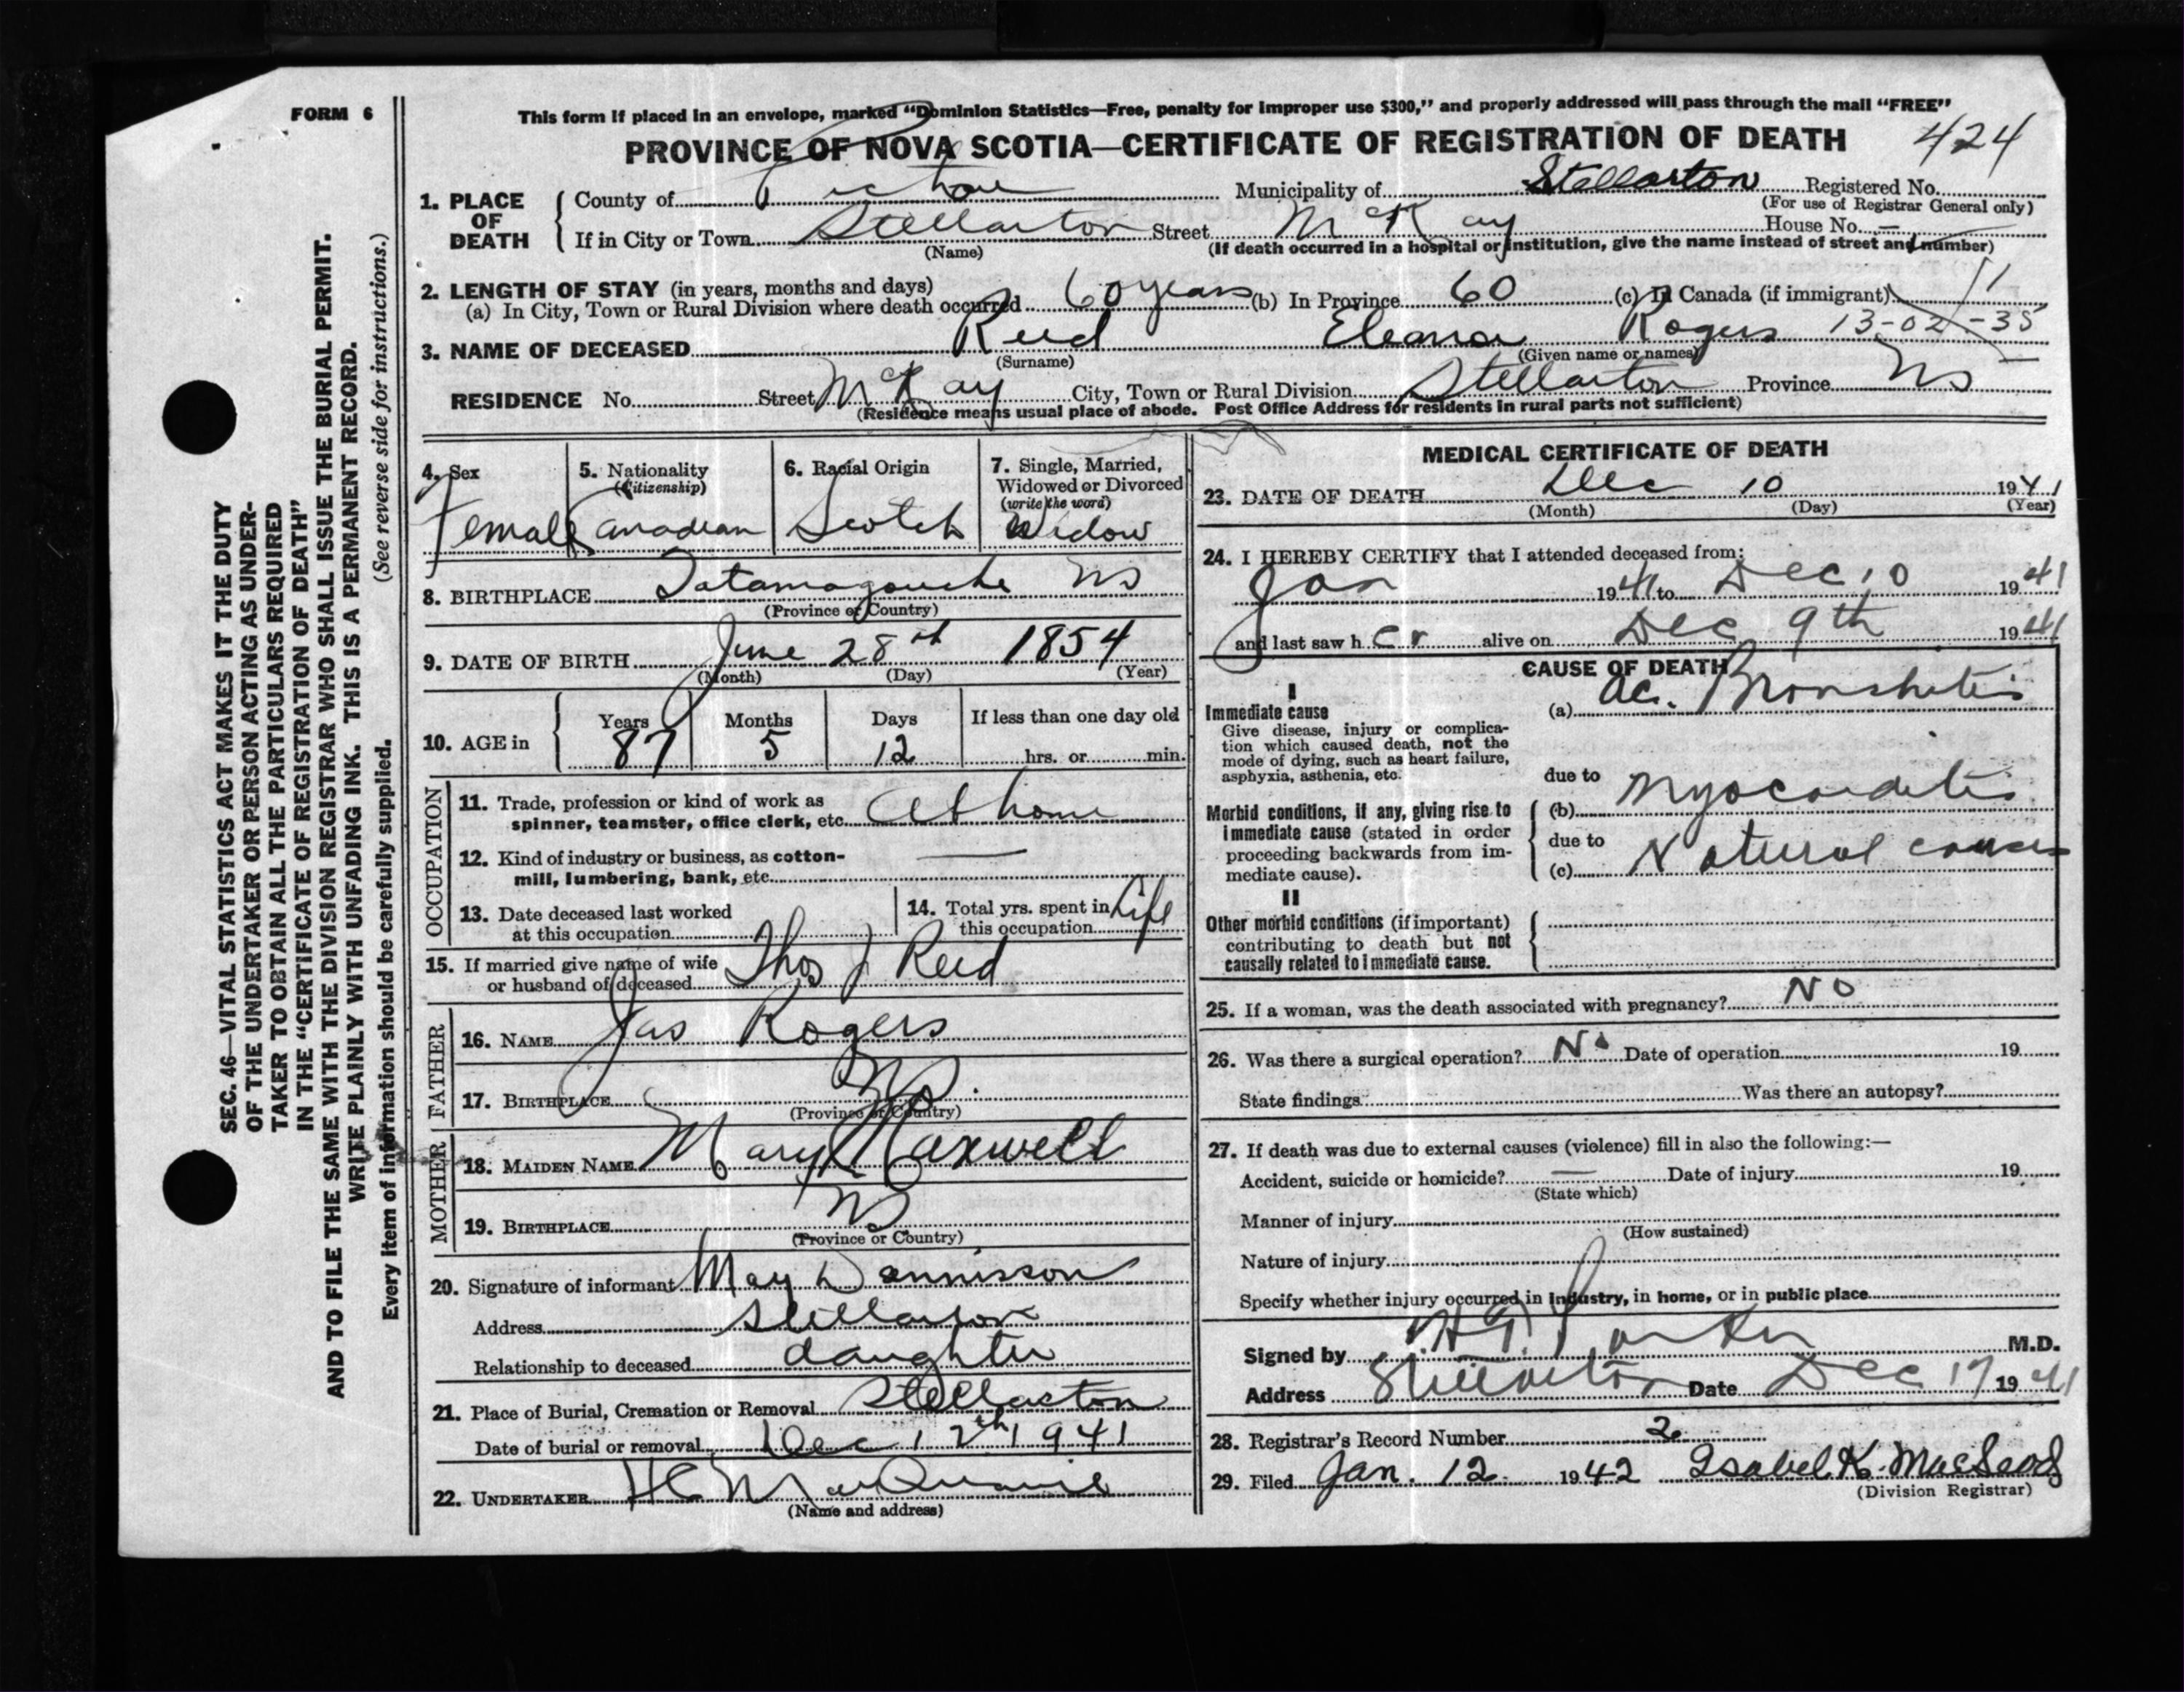 FORM 6
This form if placed in an envelope, marked "Dominion Statistics—Free, penalty for improper use $300," and properly addressed will pass through the mail "FREE"
PROVINCE OF NOVA SCOTIA—CERTIFICATE OF REGISTRATION OF DEATH
424
1. PLACE OF DEATH
County of Pictou Municipality of Stellarton Registered No.
(For use of Registrar General only)
If in City or Town Stellarton Street McKay House No. —
(Name) (If death occurred in a hospital or institution, give the name instead of street and number)
2. LENGTH OF STAY (in years, months and days)
(a) In City, Town or Rural Division where death occurred 60 years (b) In Province 60 (c) In Canada (if immigrant)
3. NAME OF DECEASED Reid Eleanor Rogers 13-02-35
(Surname) (Given name or names)
RESIDENCE No. Street McKay City, Town or Rural Division Stellarton Province NS
(Residence means usual place of abode. Post Office Address for residents in rural parts not sufficient)
4. Sex
Female
5. Nationality
(Citizenship)
Canadian
6. Racial Origin
Scotch
7. Single, Married,
Widowed or Divorced
(write the word)
Widow
8. BIRTHPLACE Tatamagouche NS
(Province or Country)
9. DATE OF BIRTH June 28th 1854
(Month) (Day) (Year)
10. AGE in
Years Months Days If less than one day old
87 5 12 hrs. or min.
OCCUPATION
11. Trade, profession or kind of work as
spinner, teamster, office clerk, etc. At home
12. Kind of industry or business, as cotton-
mill, lumbering, bank, etc. —
13. Date deceased last worked
at this occupation
14. Total yrs. spent in
this occupation Life
15. If married give name of wife
or husband of deceased Thos J Reid
FATHER
16. NAME Jas Rogers
17. BIRTHPLACE NS.
(Province or Country)
MOTHER
18. MAIDEN NAME Mary Maxwell
19. BIRTHPLACE NS
(Province or Country)
20. Signature of informant May Dannisson
Address Stellarton
Relationship to deceased daughter
21. Place of Burial, Cremation or Removal Stellarton
Date of burial or removal Dec 12th 1941
22. UNDERTAKER H C MacQuarrie
(Name and address)
MEDICAL CERTIFICATE OF DEATH
23. DATE OF DEATH Dec 10 1941
(Month) (Day) (Year)
24. I HEREBY CERTIFY that I attended deceased from:
Jan 1941 to Dec 10 1941
and last saw her alive on Dec 9th 1941
CAUSE OF DEATH
I
Immediate cause
Give disease, injury or complica-
tion which caused death, not the
mode of dying, such as heart failure,
asphyxia, asthenia, etc.
(a) Ac. Bronchitis
due to
Morbid conditions, if any, giving rise to
immediate cause (stated in order
proceeding backwards from im-
mediate cause).
(b) Myocarditis
due to
(c) Natural causes
II
Other morbid conditions (if important)
contributing to death but not
causally related to immediate cause.
25. If a woman, was the death associated with pregnancy? No
26. Was there a surgical operation? No Date of operation 19
State findings Was there an autopsy?
27. If death was due to external causes (violence) fill in also the following:—
Accident, suicide or homicide? — Date of injury 19
(State which)
Manner of injury
(How sustained)
Nature of injury
Specify whether injury occurred in industry, in home, or in public place
Signed by Parker M.D.
Address Stellarton Date Dec 17 1941
28. Registrar's Record Number 2
29. Filed Jan. 12 1942 Isabel K. MacLeod
(Division Registrar)
SEC. 46—VITAL STATISTICS ACT MAKES IT THE DUTY
OF THE UNDERTAKER OR PERSON ACTING AS UNDER-
TAKER TO OBTAIN ALL THE PARTICULARS REQUIRED
IN THE "CERTIFICATE OF REGISTRATION OF DEATH"
AND TO FILE THE SAME WITH THE DIVISION REGISTRAR WHO SHALL ISSUE THE BURIAL PERMIT.
WRITE PLAINLY WITH UNFADING INK. THIS IS A PERMANENT RECORD.
Every item of information should be carefully supplied. (See reverse side for instructions.)